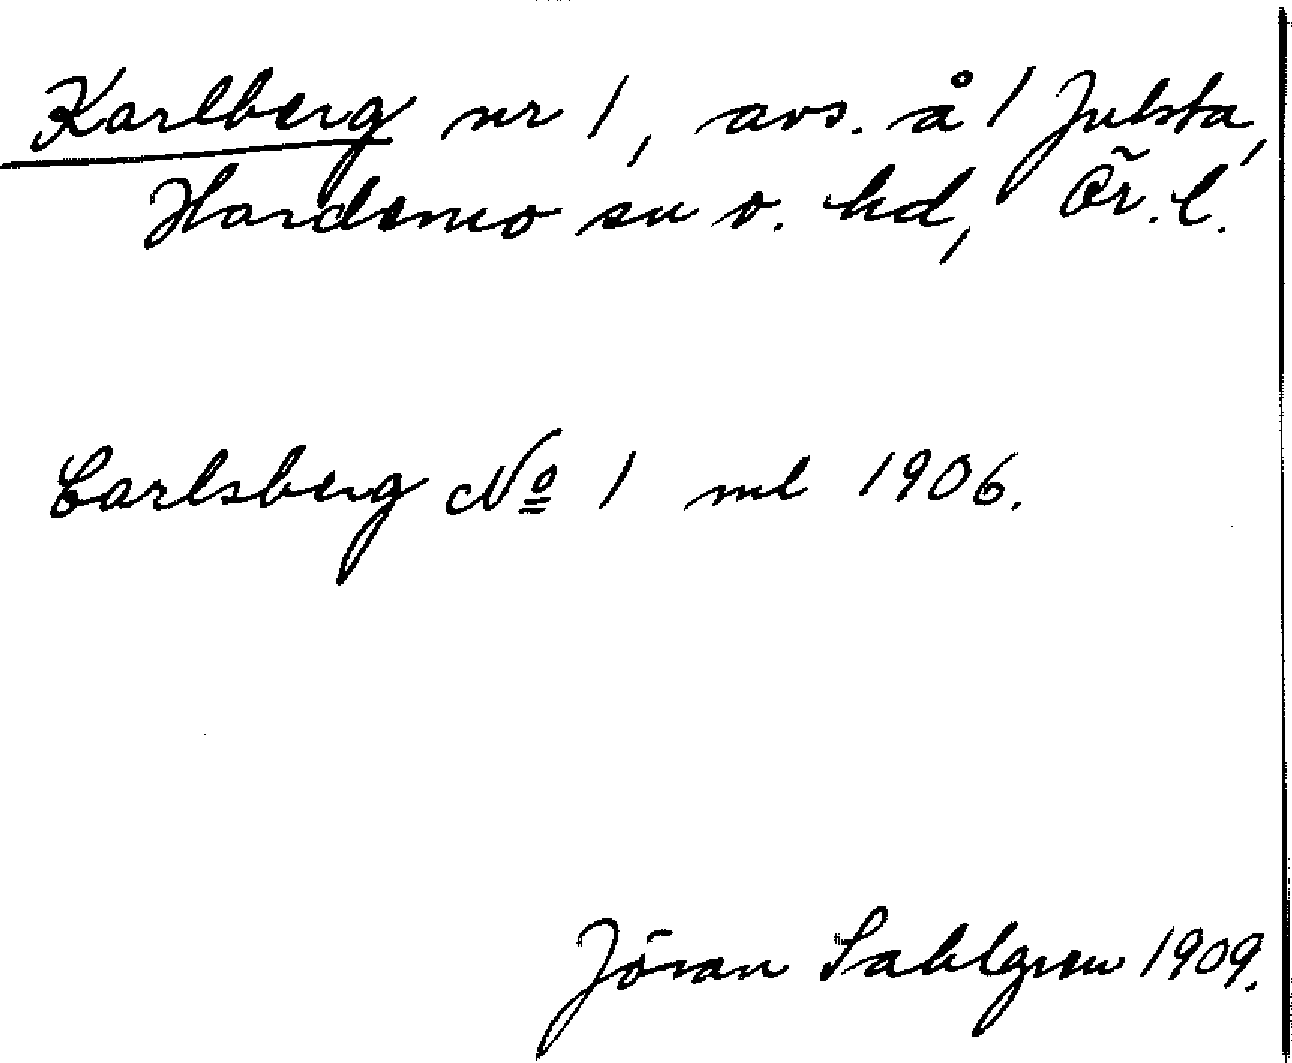 Karlberg nr 1, avs. å 1 Julsta,
Hardemo sn o. hd, Ör. l.
Carlsberg No 1 ml 1906.
Jöran Sahlgren 1909.